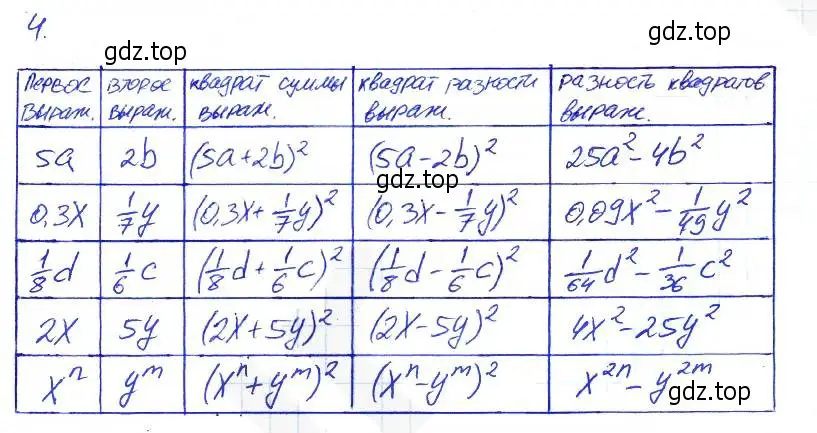 4.
gdz.top
Первое выраж. | второе выраж. | квадрат суммы выраж. | квадрат разности выраж. | разность квадратов выраж.
5a | 2b | (5a+2b)² | (5a-2b)² | 25a²-4b²
gdz.top
0,3x | 1/7y | (0,3x+1/7y)² | (0,3x-1/7y)² | 0,09x²-1/49y²
1/8d | 1/6c | (1/8d+1/6c)² | (1/8d-1/6c)² | 1/64d²-1/36c²
2x | 5y | (2x+5y)² | (2x-5y)² | 4x²-25y²
xⁿ | yᵐ | (xⁿ+yᵐ)² | (xⁿ-yᵐ)² | x²ⁿ-y²ᵐ
gdz.top